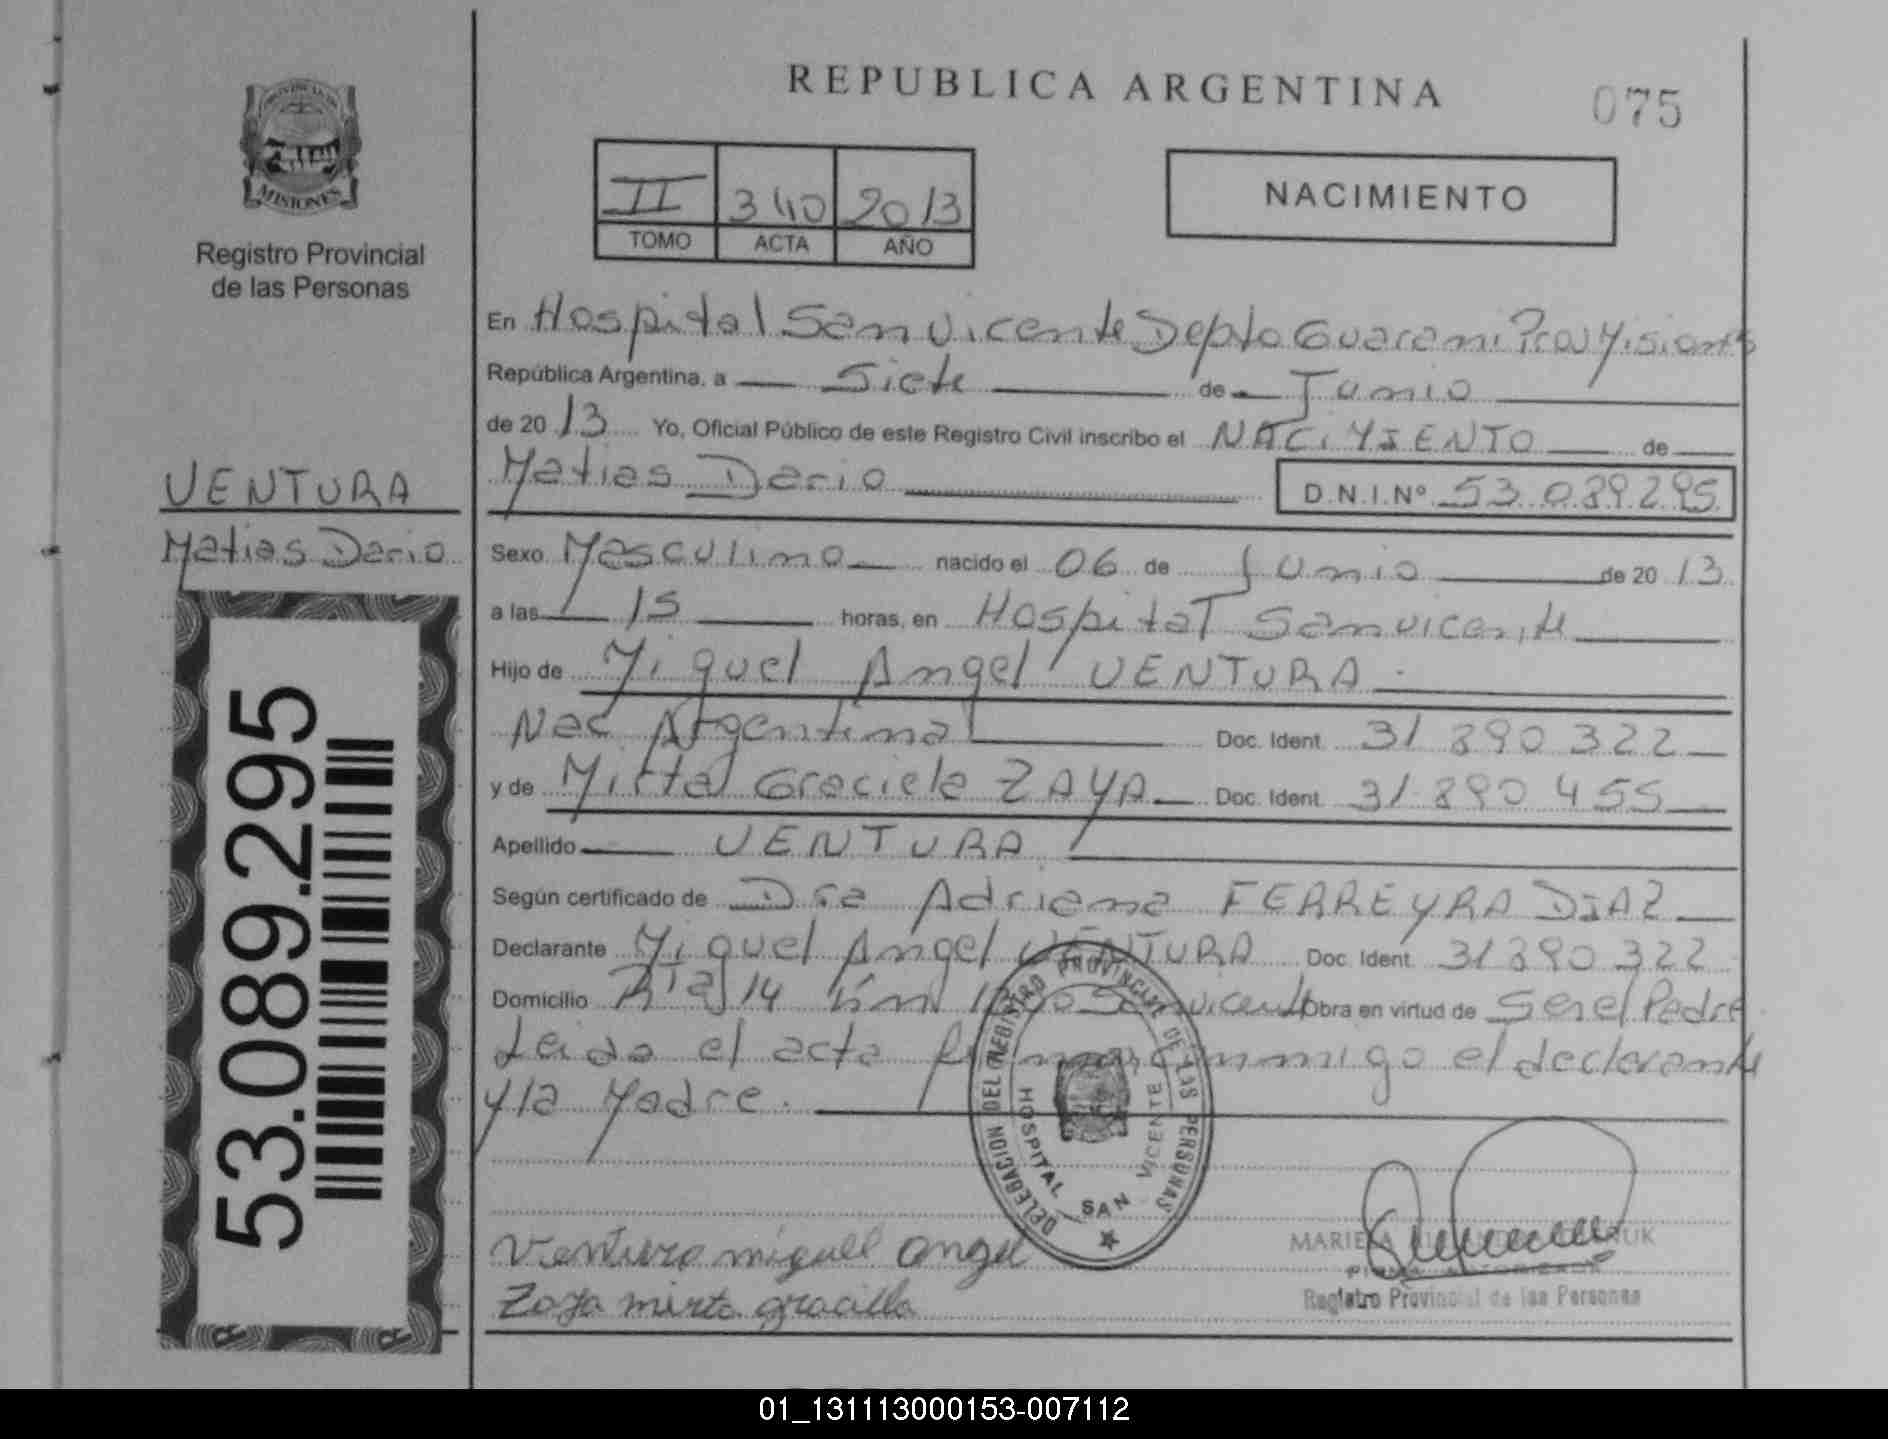 REPUBLICA ARGENTINA
075
MISIONES
Registro Provincial
de las Personas
II 340 2013
TOMO ACTA AÑO
NACIMIENTO
En Hospital San Vicente Depto Guarani Prov Misiones
República Argentina, a Siete de Junio
de 2013 Yo, Oficial Público de este Registro Civil inscribo el NACIMIENTO de
Matias Dario D.N.I.Nº 53.089.295
VENTURA
Matias Dario
53.089.295
Sexo Masculino nacido el 06 de Junio de 2013
a las 15 horas, en Hospital San Vicente
Hijo de Miguel Angel VENTURA
Nac. Argentina Doc. Ident. 31 890 322
y de Mirta Graciela ZAYA Doc. Ident. 31.890 455
Apellido VENTURA
Según certificado de Dra Adriana FERREYRA DIAZ
Declarante Miguel Angel VENTURA Doc. Ident. 31890 322
Domicilio Rta 14 km San Vicente Obra en virtud de Ser el Padre
Leida el acta firman conmigo el declarante
y la Madre.
DELEGACION DEL REGISTRO PROVINCIAL DE LAS PERSONAS
HOSPITAL SAN VICENTE
Ventura miguel angel
Zaya mirta graciela
Registro Provincial de las Personas
01_131113000153-007112